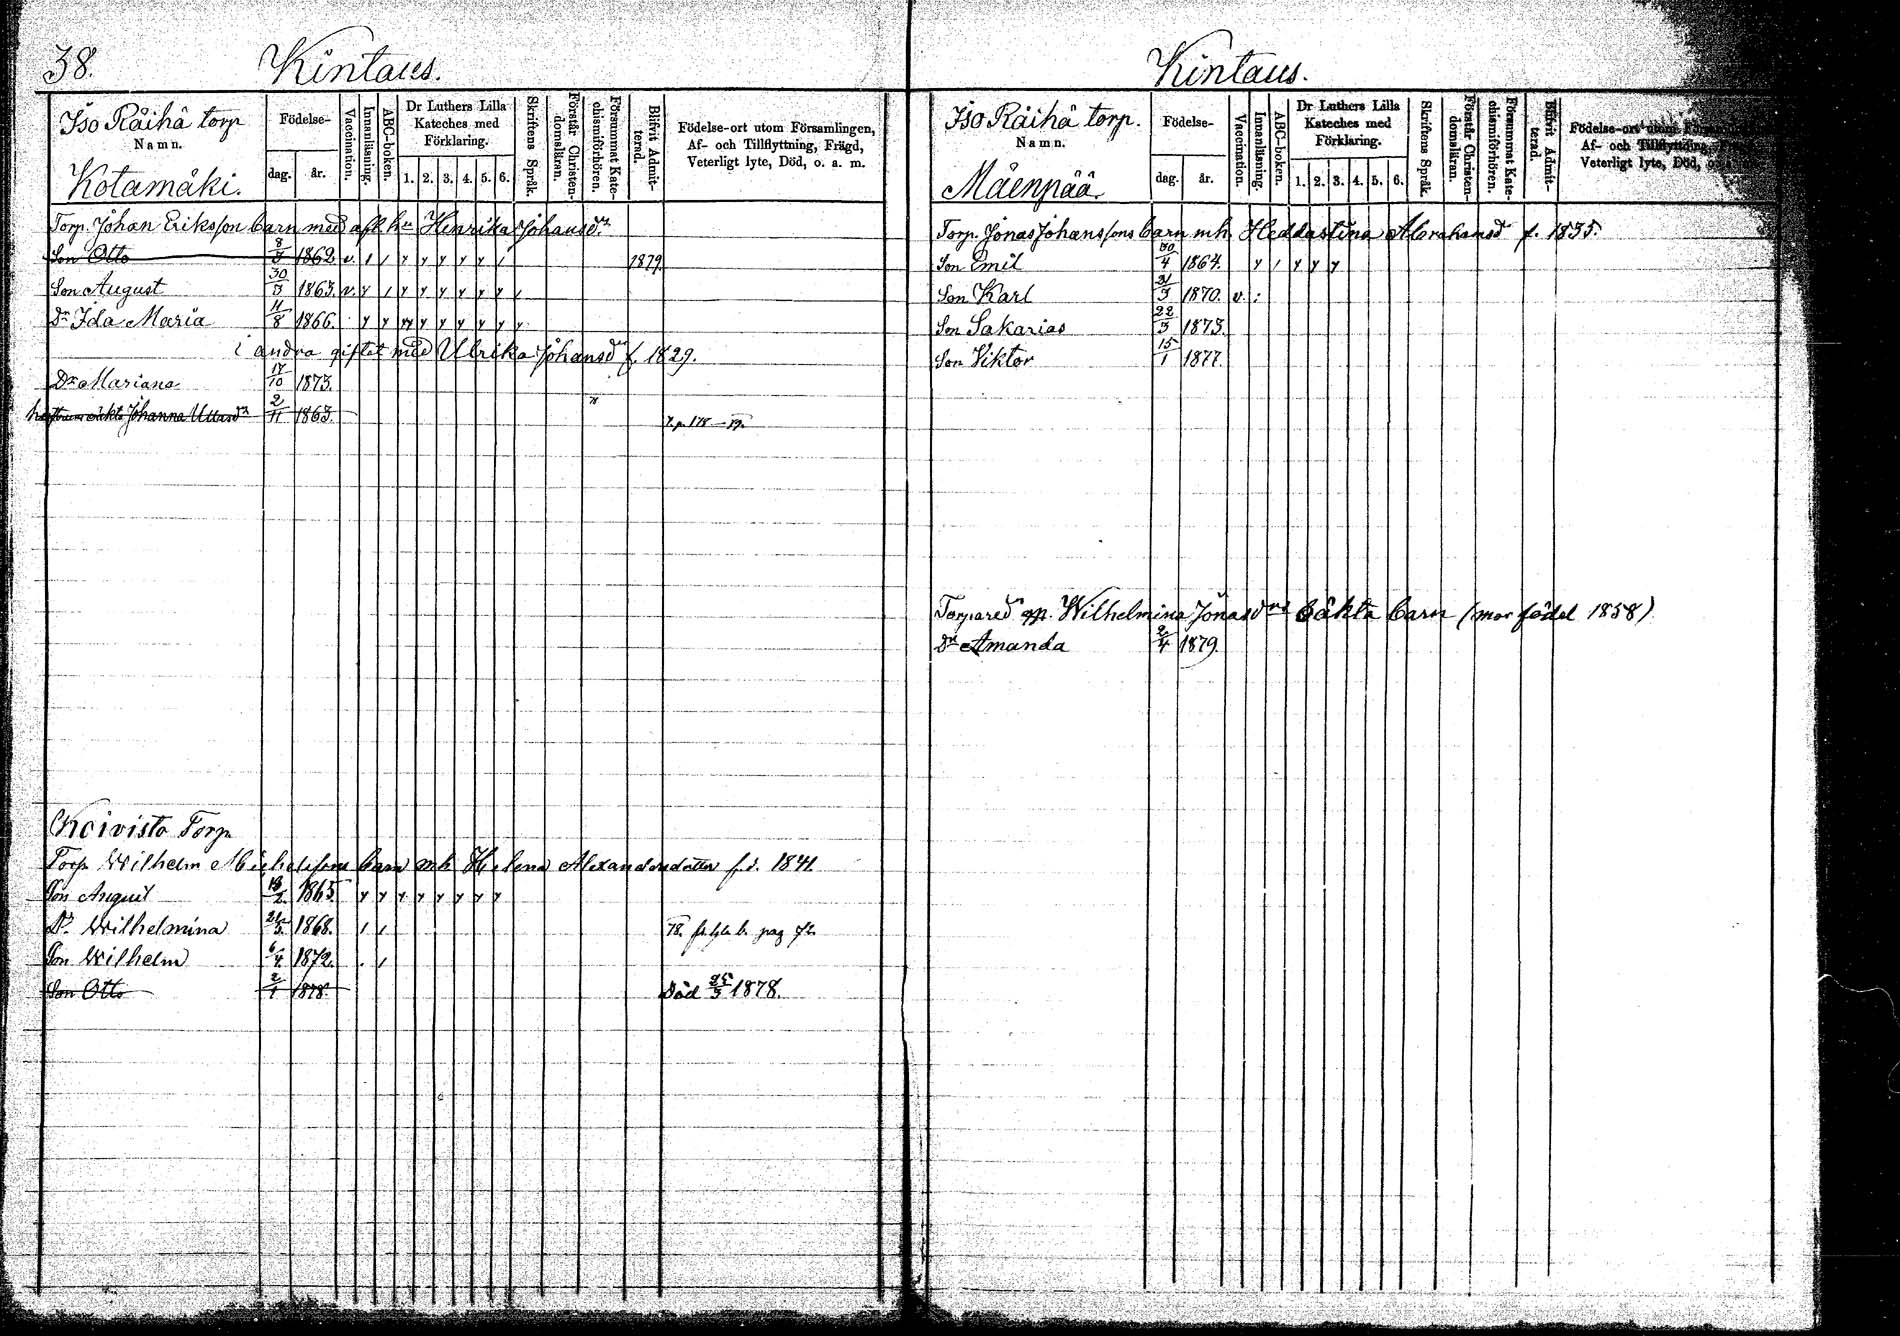 38.
Kintaus.
Iso Räihä torp
Namn.
Kotamäki.
Födelse-
dag. år.
Vaccination.
Innanläsning.
ABC-boken.
Dr Luthers Lilla
Kateches med
Förklaring.
1. 2. 3. 4. 5. 6.
Skriftens Språk.
Förstår Christen-
domsläran.
Försummat Kate-
chismiförhören.
Blifvit Admit-
terad.
Födelse-ort utom Församlingen,
Af- och Tillflyttning, Frägd,
Veterligt lyte, Död, o. a. m.
Torp. Johan Eriksson barn med afl. h. Henrika Johansdr
Son Otto 8/5 1862 v. 1879.
Son August 30/3 1863. v.
Dr Ida Maria 11/8 1866.
i andra giftet med Ulrika Johansdr f. 1829.
Dr Mariana 17/10 1873.
Johanna 2/11 1863. 178
Koivisto Torp
Torp. Wilhelm Michelssons barn mh Helena Alexandersdotter f.d. 1841.
Son August 18/2. 1865.
Dr Wilhelmina 1868. 78. pag 72
Son Wilhelm 6/4. 1872.
Son Otto 2/1 1878. Död 25/3 1878.
Kintaus.
Iso Räihä torp.
Namn.
Mäenpää
Födelse-
dag. år.
Vaccination.
Innanläsning.
ABC-boken.
Dr Luthers Lilla
Kateches med
Förklaring.
1. 2. 3. 4. 5. 6.
Skriftens Språk.
Förstår Christen-
domsläran.
Försummat Kate-
chismiförhören.
Blifvit Admit-
terad.
Födelse-ort utom
Af- och Tillflyttning,
Veterligt lyte, Död,
Torp. Jonas Johanssons barn mh Heddastina Abrahamsd f. 1835.
Son Emil 30/4 1864.
Son Karl 21/3 1870. v.
Son Sakarias 22/3 1873.
Son Viktor 15/1 1877.
Wilhelmina Jonasdrs oäkta barn (mor födel 1858)
Dr Amanda 2/4 1879.